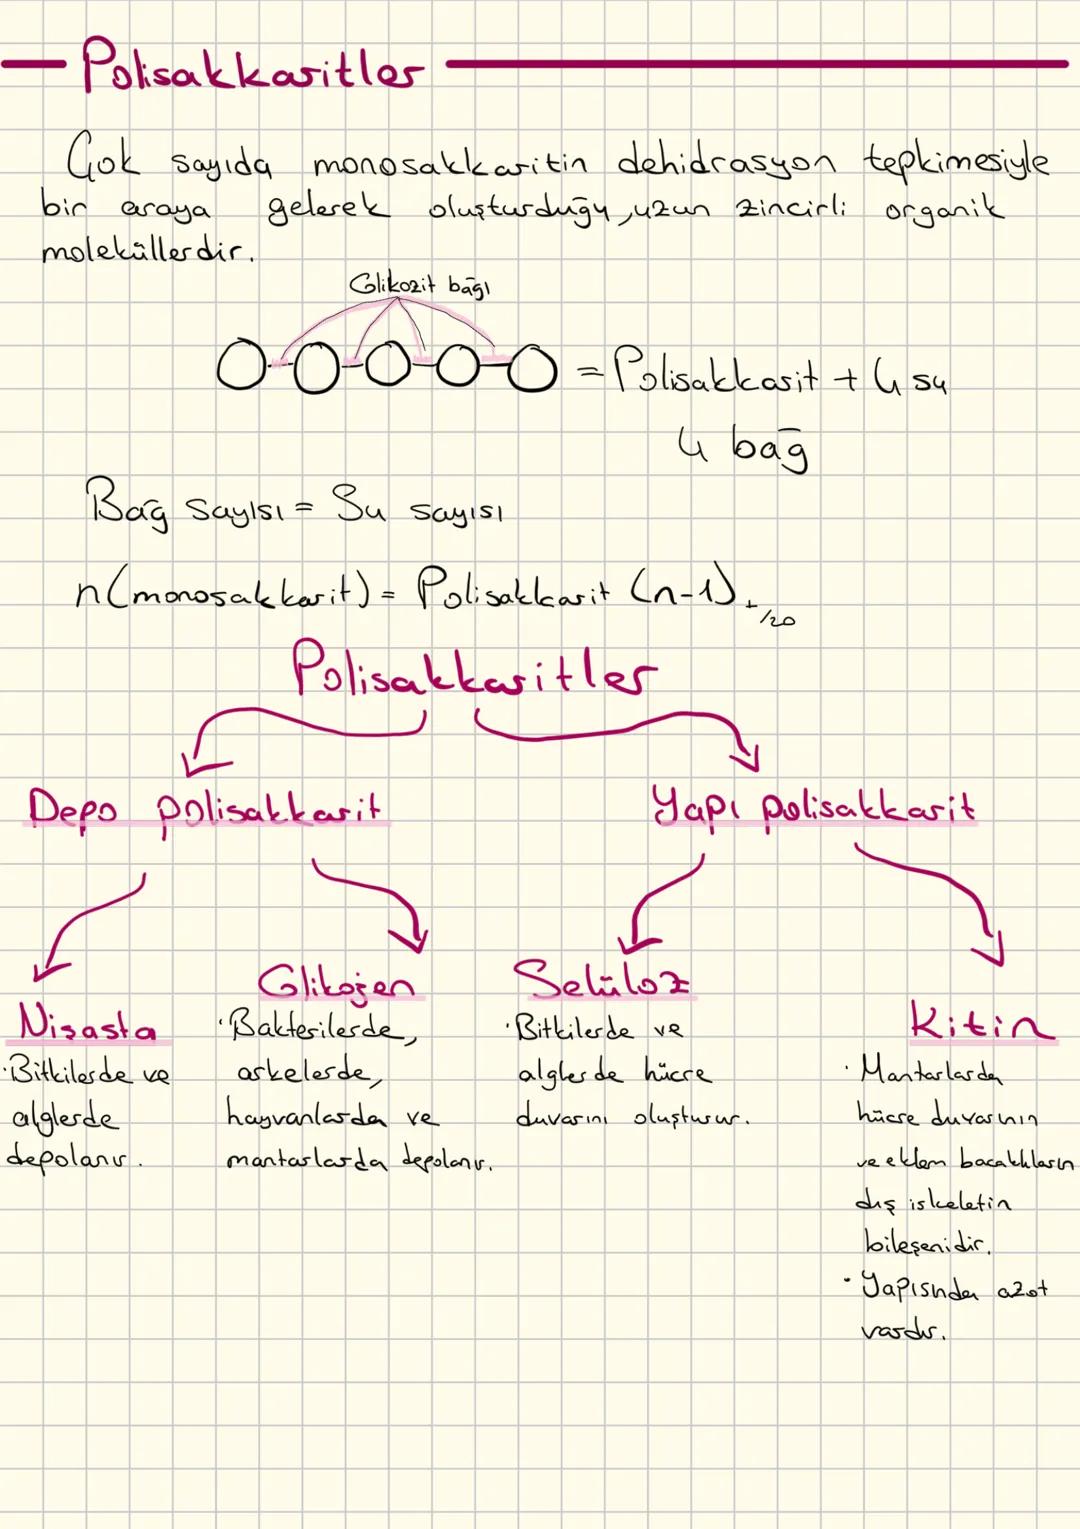 Polisakkaritler
Çok sayıda monosakkaritin dehidrasyon tepkimesiyle
bir araya gelerek oluşturduğu, uzun zincirli organik
moleküllerdir.
Glikozit bağı
= Polisakkarit + 4 su
4 bağ
Bağ sayısı = Su sayısı
n(monosakkarit) = Polisakkarit (n-1)
+ H2O
Polisakkaritler
Depo polisakkarit
Yapı polisakkarit
Nişasta
·Bitkilerde ve
alglerde
depolanır.
Glikojen
·Bakterilerde,
arkelerde,
hayvanlarda ve
mantarlarda depolanır.
Selüloz
·Bitkilerde ve
alglerde hücre
duvarını oluşturur.
Kitin
·Mantarlarda
hücre duvarının
ve eklem bacaklıların
dış iskeletin
bileşenidir.
·Yapısında azot
vardır.